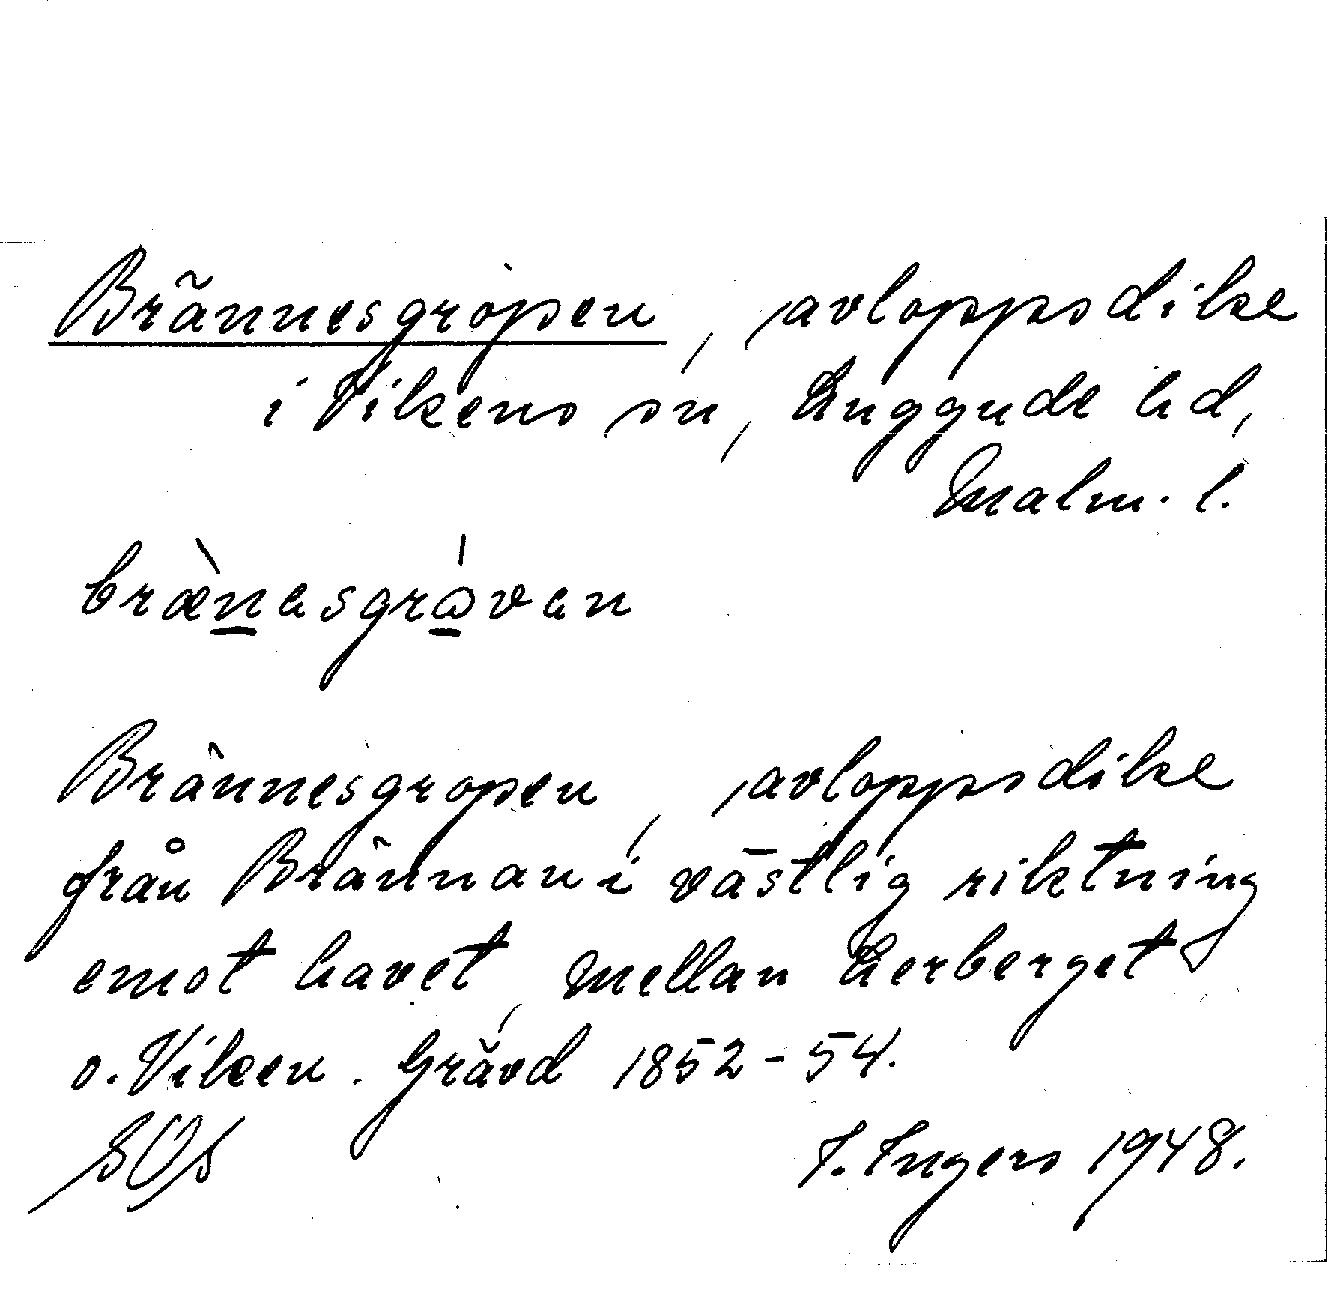 Brännesgropen, avloppsdike
i Vikens sn, Luggude hd,
Malm. l.
bræ̀n̲asgrώ̲van
Brännesgropen, avloppsdike
från Brännan i västlig riktning
emot havet, mellan Lerberget
o. Viken. Grävd 1852-54.
SOS I. Ingers 1948.